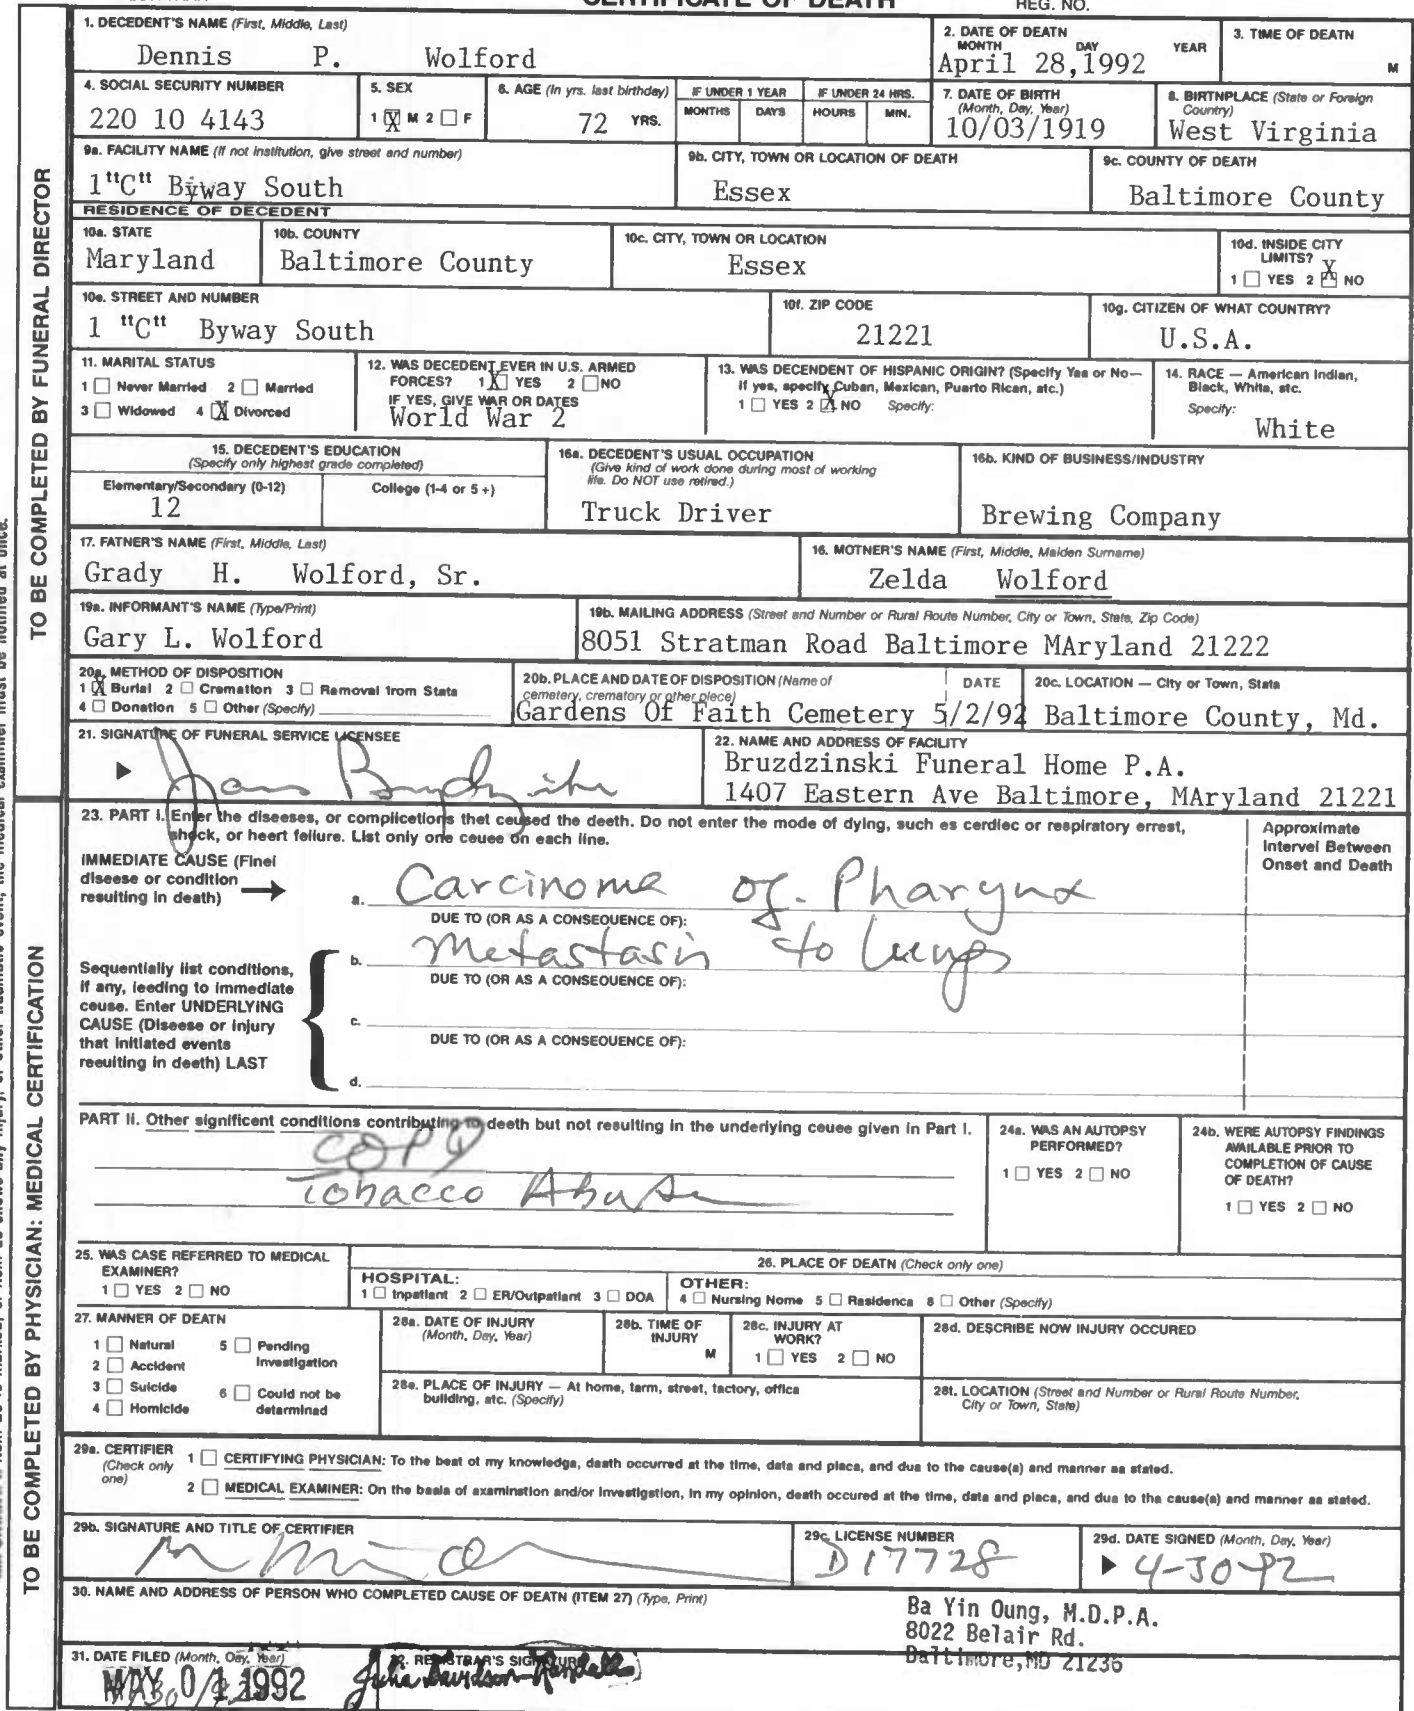 CERTIFICATE OF DEATH
REG. NO.
1. DECEDENT'S NAME (First, Middle, Last)
Dennis P. Wolford
2. DATE OF DEATH
MONTH DAY YEAR
April 28,1992
3. TIME OF DEATH
M
4. SOCIAL SECURITY NUMBER
220 10 4143
5. SEX
1 X M 2 F
6. AGE (In yrs. last birthday)
72 YRS.
IF UNDER 1 YEAR
MONTHS DAYS
IF UNDER 24 HRS.
HOURS MIN.
7. DATE OF BIRTH
(Month, Day, Year)
10/03/1919
8. BIRTNPLACE (State or Foreign
Country)
West Virginia
9a. FACILITY NAME (If not institution, give street and number)
1"C" Byway South
9b. CITY, TOWN OR LOCATION OF DEATH
Essex
9c. COUNTY OF DEATH
Baltimore County
RESIDENCE OF DECEDENT
10a. STATE
Maryland
10b. COUNTY
Baltimore County
10c. CITY, TOWN OR LOCATION
Essex
10d. INSIDE CITY
LIMITS?
1 YES 2 X NO
10e. STREET AND NUMBER
1 "C" Byway South
10f. ZIP CODE
21221
10g. CITIZEN OF WHAT COUNTRY?
U.S.A.
11. MARITAL STATUS
1 Never Married 2 Married
3 Widowed 4 X Divorced
12. WAS DECEDENT EVER IN U.S. ARMED
FORCES? 1 X YES 2 NO
IF YES, GIVE WAR OR DATES
World War 2
13. WAS DECENDENT OF HISPANIC ORIGIN? (Specify Yes or No—
If yes, specify Cuban, Mexican, Puerto Rican, etc.)
1 YES 2 X NO Specify:
14. RACE — American Indian,
Black, White, etc.
Specify:
White
15. DECEDENT'S EDUCATION
(Specify only highest grade completed)
Elementary/Secondary (0-12)
12
College (1-4 or 5 +)
16a. DECEDENT'S USUAL OCCUPATION
(Give kind of work done during most of working
life. Do NOT use retired.)
Truck Driver
16b. KIND OF BUSINESS/INDUSTRY
Brewing Company
17. FATHER'S NAME (First, Middle, Last)
Grady H. Wolford, Sr.
16. MOTNER'S NAME (First, Middle, Maiden Surname)
Zelda Wolford
19a. INFORMANT'S NAME (Type/Print)
Gary L. Wolford
19b. MAILING ADDRESS (Street and Number or Rural Route Number, City or Town, State, Zip Code)
8051 Stratman Road Baltimore MAryland 21222
20a. METHOD OF DISPOSITION
1 X Burial 2 Cremation 3 Removal from State
4 Donation 5 Other (Specify)
20b. PLACE AND DATE OF DISPOSITION (Name of
cemetery, crematory or other place)
DATE
Gardens Of Faith Cemetery 5/2/92
20c. LOCATION — City or Town, State
Baltimore County, Md.
21. SIGNATURE OF FUNERAL SERVICE LICENSEE
22. NAME AND ADDRESS OF FACILITY
Bruzdzinski Funeral Home P.A.
1407 Eastern Ave Baltimore, MAryland 21221
TO BE COMPLETED BY FUNERAL DIRECTOR
23. PART I. Enter the diseases, or complicetions thet ceused the deeth. Do not enter the mode of dying, such es cerdiec or respiratory errest,
shock, or heert feilure. List only one ceuee on each line.
Approximate
Intervel Between
Onset and Death
IMMEDIATE CAUSE (Finel
diseese or condition
resulting in death)
a. Carcinoma of Pharynx
DUE TO (OR AS A CONSEQUENCE OF):
b. Metastasis to lungs
DUE TO (OR AS A CONSEQUENCE OF):
Sequentially list conditions,
if any, leeding to immediate
ceuse. Enter UNDERLYING
CAUSE (Diseese or injury
that initiated events
reeuiting in deeth) LAST
c.
DUE TO (OR AS A CONSEQUENCE OF):
d.
PART II. Other significent conditions contributing to deeth but not resulting in the underlying ceuee given in Part I.
COPD
Tobacco Abuse
24a. WAS AN AUTOPSY
PERFORMED?
1 YES 2 NO
24b. WERE AUTOPSY FINDINGS
AVAILABLE PRIOR TO
COMPLETION OF CAUSE
OF DEATH?
1 YES 2 NO
25. WAS CASE REFERRED TO MEDICAL
EXAMINER?
1 YES 2 NO
26. PLACE OF DEATH (Check only one)
HOSPITAL:
1 Inpatient 2 ER/Outpatient 3 DOA
OTHER:
4 Nursing Nome 5 Residence 8 Other (Specify)
27. MANNER OF DEATH
1 Natural 5 Pending
2 Accident Investigation
3 Suicide 6 Could not be
4 Homicide determined
28a. DATE OF INJURY
(Month, Day, Year)
28b. TIME OF
INJURY
M
28c. INJURY AT
WORK?
1 YES 2 NO
28d. DESCRIBE NOW INJURY OCCURED
28e. PLACE OF INJURY — At home, farm, street, factory, office
building, etc. (Specify)
28f. LOCATION (Street and Number or Rural Route Number,
City or Town, State)
29a. CERTIFIER
(Check only
one)
1 CERTIFYING PHYSICIAN: To the best of my knowledge, death occurred at the time, data and place, and due to the cause(a) and manner as stated.
2 MEDICAL EXAMINER: On the basis of examination and/or investigation, in my opinion, death occured at the time, data and place, and due to the cause(a) and manner as stated.
29b. SIGNATURE AND TITLE OF CERTIFIER
29c. LICENSE NUMBER
D17728
29d. DATE SIGNED (Month, Day, Year)
4-30-92
30. NAME AND ADDRESS OF PERSON WHO COMPLETED CAUSE OF DEATH (ITEM 27) (Type, Print)
Ba Yin Oung, M.D.P.A.
8022 Belair Rd.
Baltimore,MD 21236
31. DATE FILED (Month, Day, Year)
MAY 01 1992
32. REGISTRAR'S SIGNATURE
Julia Davidson-Randall
TO BE COMPLETED BY PHYSICIAN: MEDICAL CERTIFICATION